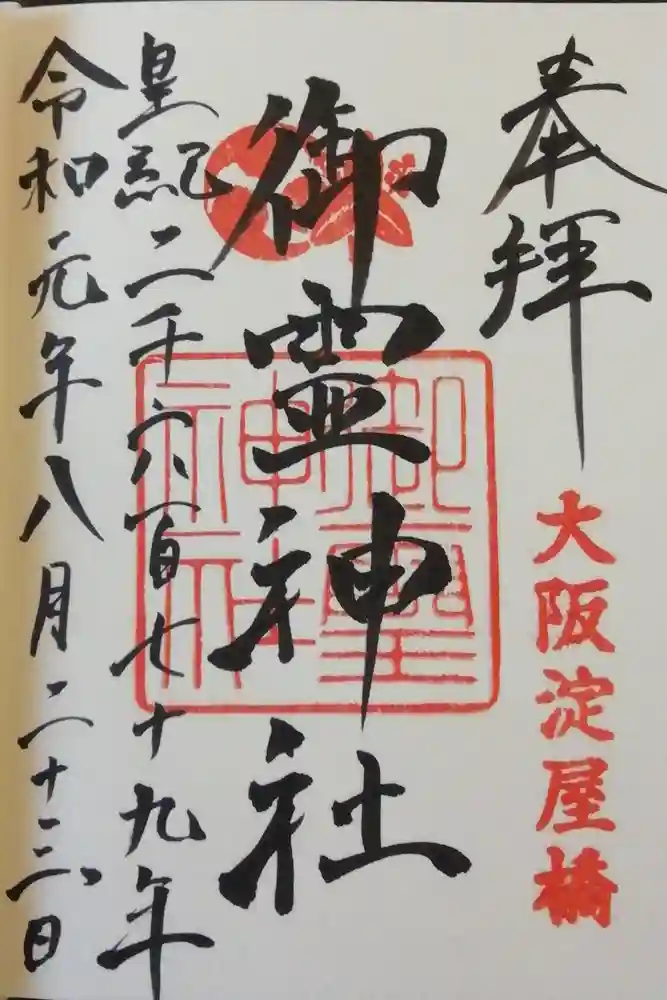 奉拝
大阪淀屋橋
御霊神社
御霊神社
皇紀二千六百七十九年
令和元年八月二十三日